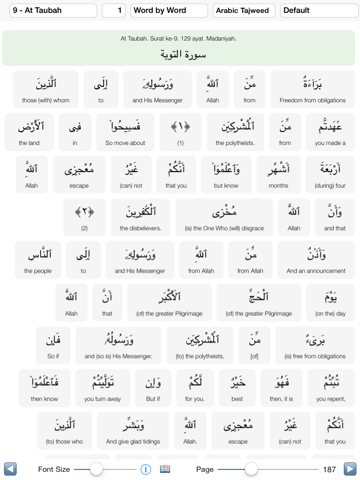 9 - At Taubah 1 Word by Word Arabic Tajweed Default
At Taubah. Surat ke-9. 129 ayat. Madaniyah.
سورة التوبة
بَرَآءَةٌ مِّنَ ٱللَّهِ وَرَسُولِهِۦٓ إِلَى ٱلَّذِينَ
those (with) whom to and His Messenger Allah from Freedom from obligations
عَٰهَدتُّم مِّنَ ٱلْمُشْرِكِينَ ﴿١﴾ فَسِيحُوا۟ فِى ٱلْأَرْضِ
the land in So move about (1) the polytheists. from you made a
أَرْبَعَةَ أَشْهُرٍ وَٱعْلَمُوٓا۟ أَنَّكُمْ غَيْرُ مُعْجِزِى ٱللَّهِ
Allah escape (can) not that you but know months (during) four
وَأَنَّ ٱللَّهَ مُخْزِى ٱلْكَٰفِرِينَ ﴿٢﴾
(2) the disbelievers. (is) the One Who (will) disgrace Allah and that
وَأَذَٰنٌ مِّنَ ٱللَّهِ وَرَسُولِهِۦٓ إِلَى ٱلنَّاسِ
the people to and His Messenger from Allah from Allah And an announcement
يَوْمَ ٱلْحَجِّ ٱلْأَكْبَرِ أَنَّ ٱللَّهَ
Allah that (of) the greater Pilgrimage (of) the greater Pilgrimage (on the) day
بَرِىٓءٌ مِّنَ ٱلْمُشْرِكِينَ وَرَسُولُهُۥ فَإِن
So if and (so is) His Messenger. (to) the polytheists, [of] (is) free from obligations
تُبْتُمْ فَهُوَ خَيْرٌ لَّكُمْ وَإِن تَوَلَّيْتُمْ فَٱعْلَمُوٓا۟
then know you turn away But if for you. best then, it is you repent,
أَنَّكُمْ غَيْرُ مُعْجِزِى ٱللَّهِ وَبَشِّرِ ٱلَّذِينَ
(to) those who And give glad tidings Allah. escape (can) not that you
Font Size Page 187